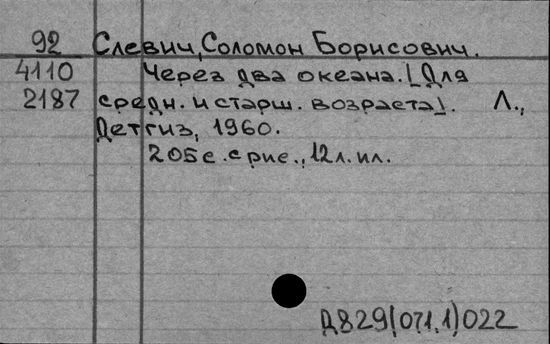 92 Слевич, Соломон Борисович.
4110 Через два океана. [Для
2187 средн. и старш. возраста]. Л.,
Детгиз, 1960.
205 с. с рис., 12 л. ил.
Д829(071.1)022